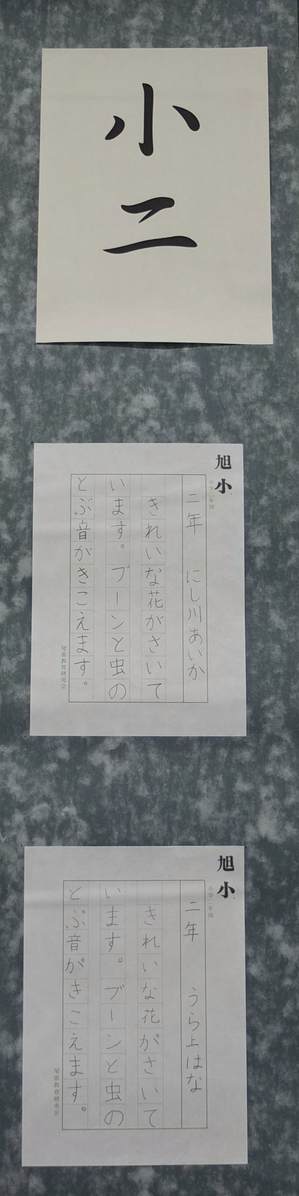 小二
旭小
二年 にし川あいか
きれいな花がさいて
います。ブーンと虫の
とぶ音がきこえます。
旭小
二年 うら上はな
きれいな花がさいて
います。ブーンと虫の
とぶ音がきこえます。